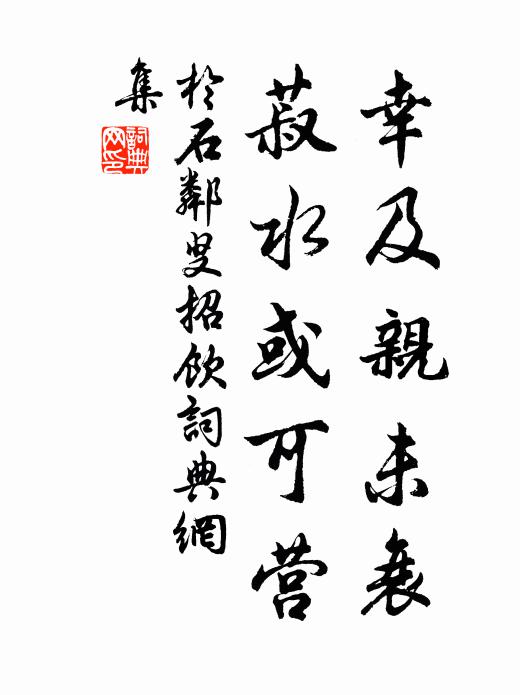 幸及親未衰
菽水或可营
於石鄰叟招飲詞典網
集
詞典
网印